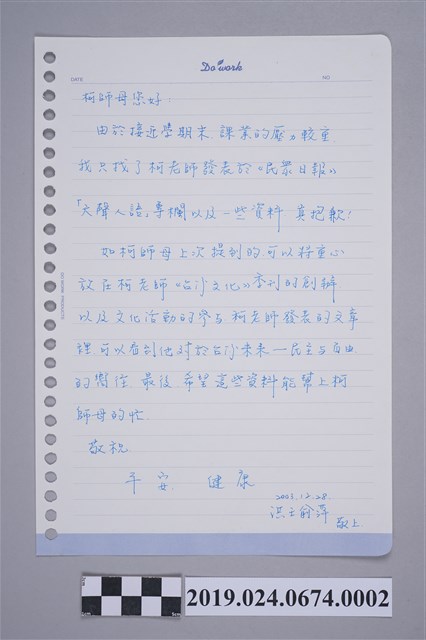 Do work
DATE
NO
柯師母您好:
由於接近學期末,課業的壓力較重
我只找了柯老師發表於《民眾日報》
「天聲人語」專欄以及一些資料 真抱歉!
如柯師母上次提到的,可以將重心
放在柯老師《台灣文化》季刊的創辦
以及文化活動的參與,柯老師發表的文章
裡,可以看到他對於台灣未來—民主與自由
的嚮往。最後,希望這些資料能幫上柯
師母的忙。
敬祝
平安 健康
2003.12.28
洪士
敬上
2019.024.0674.0002